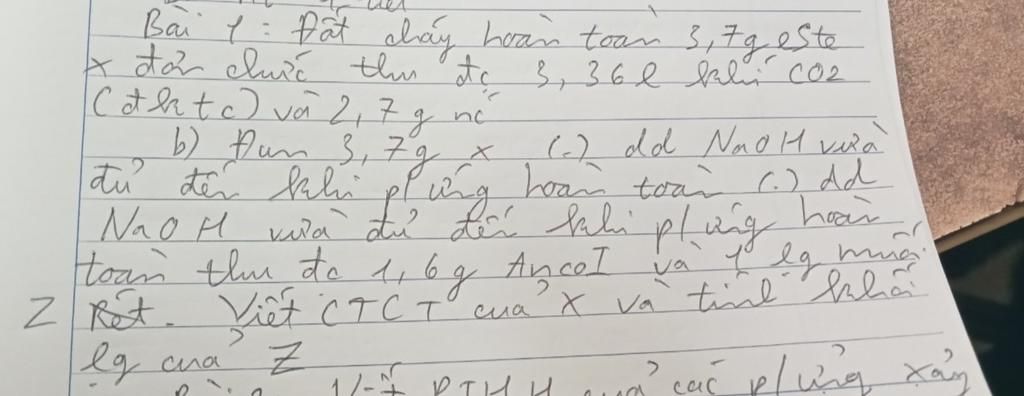 Bài 1 : Đốt cháy hoàn toàn 3,7g este
X đơn chức thu đc 3,36l khí CO2
(đktc) và 2,7g nc
b) Đun 3,7g X (.) dd NaOH vừa
đủ đến khi p/ứng hoàn toàn (.) dd
NaOH vừa đủ đến khi p/ứng hoàn
toàn thu đc 1,6g AncoI và 1 lg muối
Z Viết CTCT của X và tính khối
lg của Z
PTHH của các p/ứng xảy